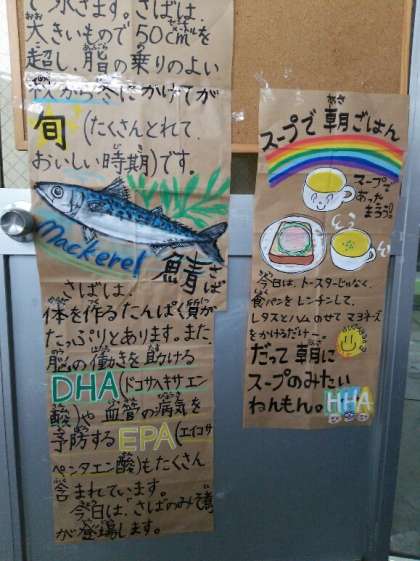 で泳ぎます。さばは、
大きいもので50cmを
超し、脂の乗りのよい
秋から冬にかけてが
旬(たくさんとれて、
おいしい時期)です。
Mackerel
鯖さば
さばは、
体を作るたんぱく質が
たっぷりとあります。また、
脳の働きを助ける
DHA(ドコサヘキサエン
酸)や血管の病気を
予防するEPA(エイコサ
ペンタエン酸)もたくさん
含まれています。
今日は、「さばのみそ煮」
が登場します。
スープで朝ごはん
スープで
あった
まろう!
今日は、トースターじゃなく、
食パンをレンチンして、
レタスとハムのせてマヨネーズ
をかけるだけー。
だって朝に
スープのみたい
ねんもん。
HHA